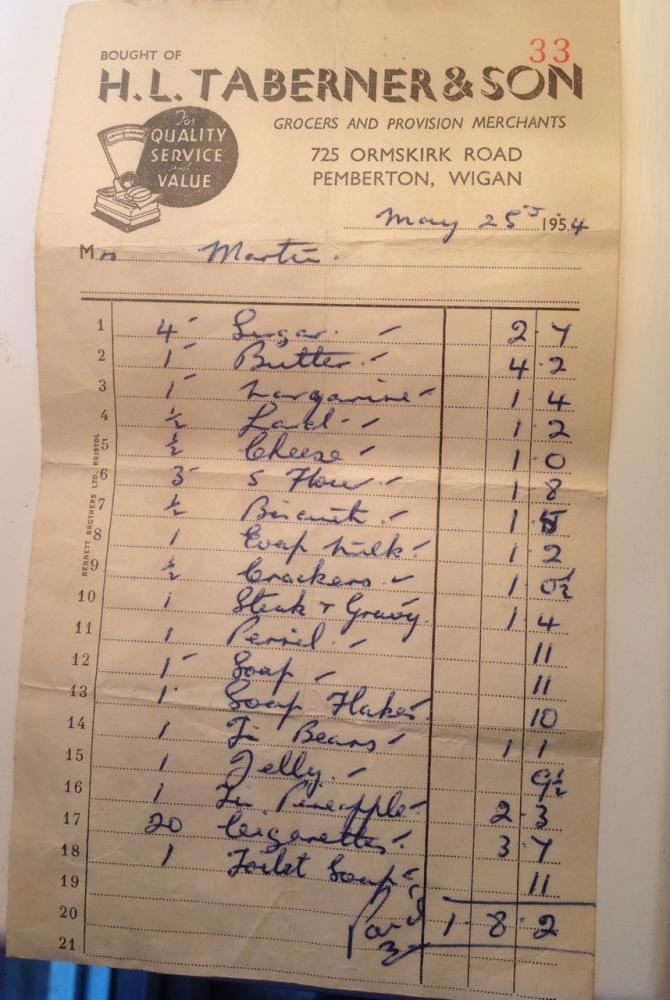 33
BOUGHT OF
H.L. TABERNER & SON
GROCERS AND PROVISION MERCHANTS
For QUALITY SERVICE VALUE
725 ORMSKIRK ROAD
PEMBERTON, WIGAN
May 25 1954
Mrs Martin.
1 4 Sugar 2 7
2 1 Butter 4 2
3 1 Margarine 1 4
4 ½ Lard 1 2
5 ½ Cheese 1 0
6 3 S Flour 1 8
7 ½ Biscuits 1 5
8 1 Evap Milk 1 2
9 ½ Crackers 1 0½
10 1 Steak + Gravy 1 4
11 1 Persil 11
12 1 Soap 11
13 1 Soap Flakes 10
14 1 Tin Beans 1 1
15 1 Jelly 9½
16 1 Tin Pineapple 2 3
17 20 Cigarettes 3 7
18 1 Toilet Soap 11
19
20 1 8 2
21
BENNETT BROTHERS LTD. BRISTOL